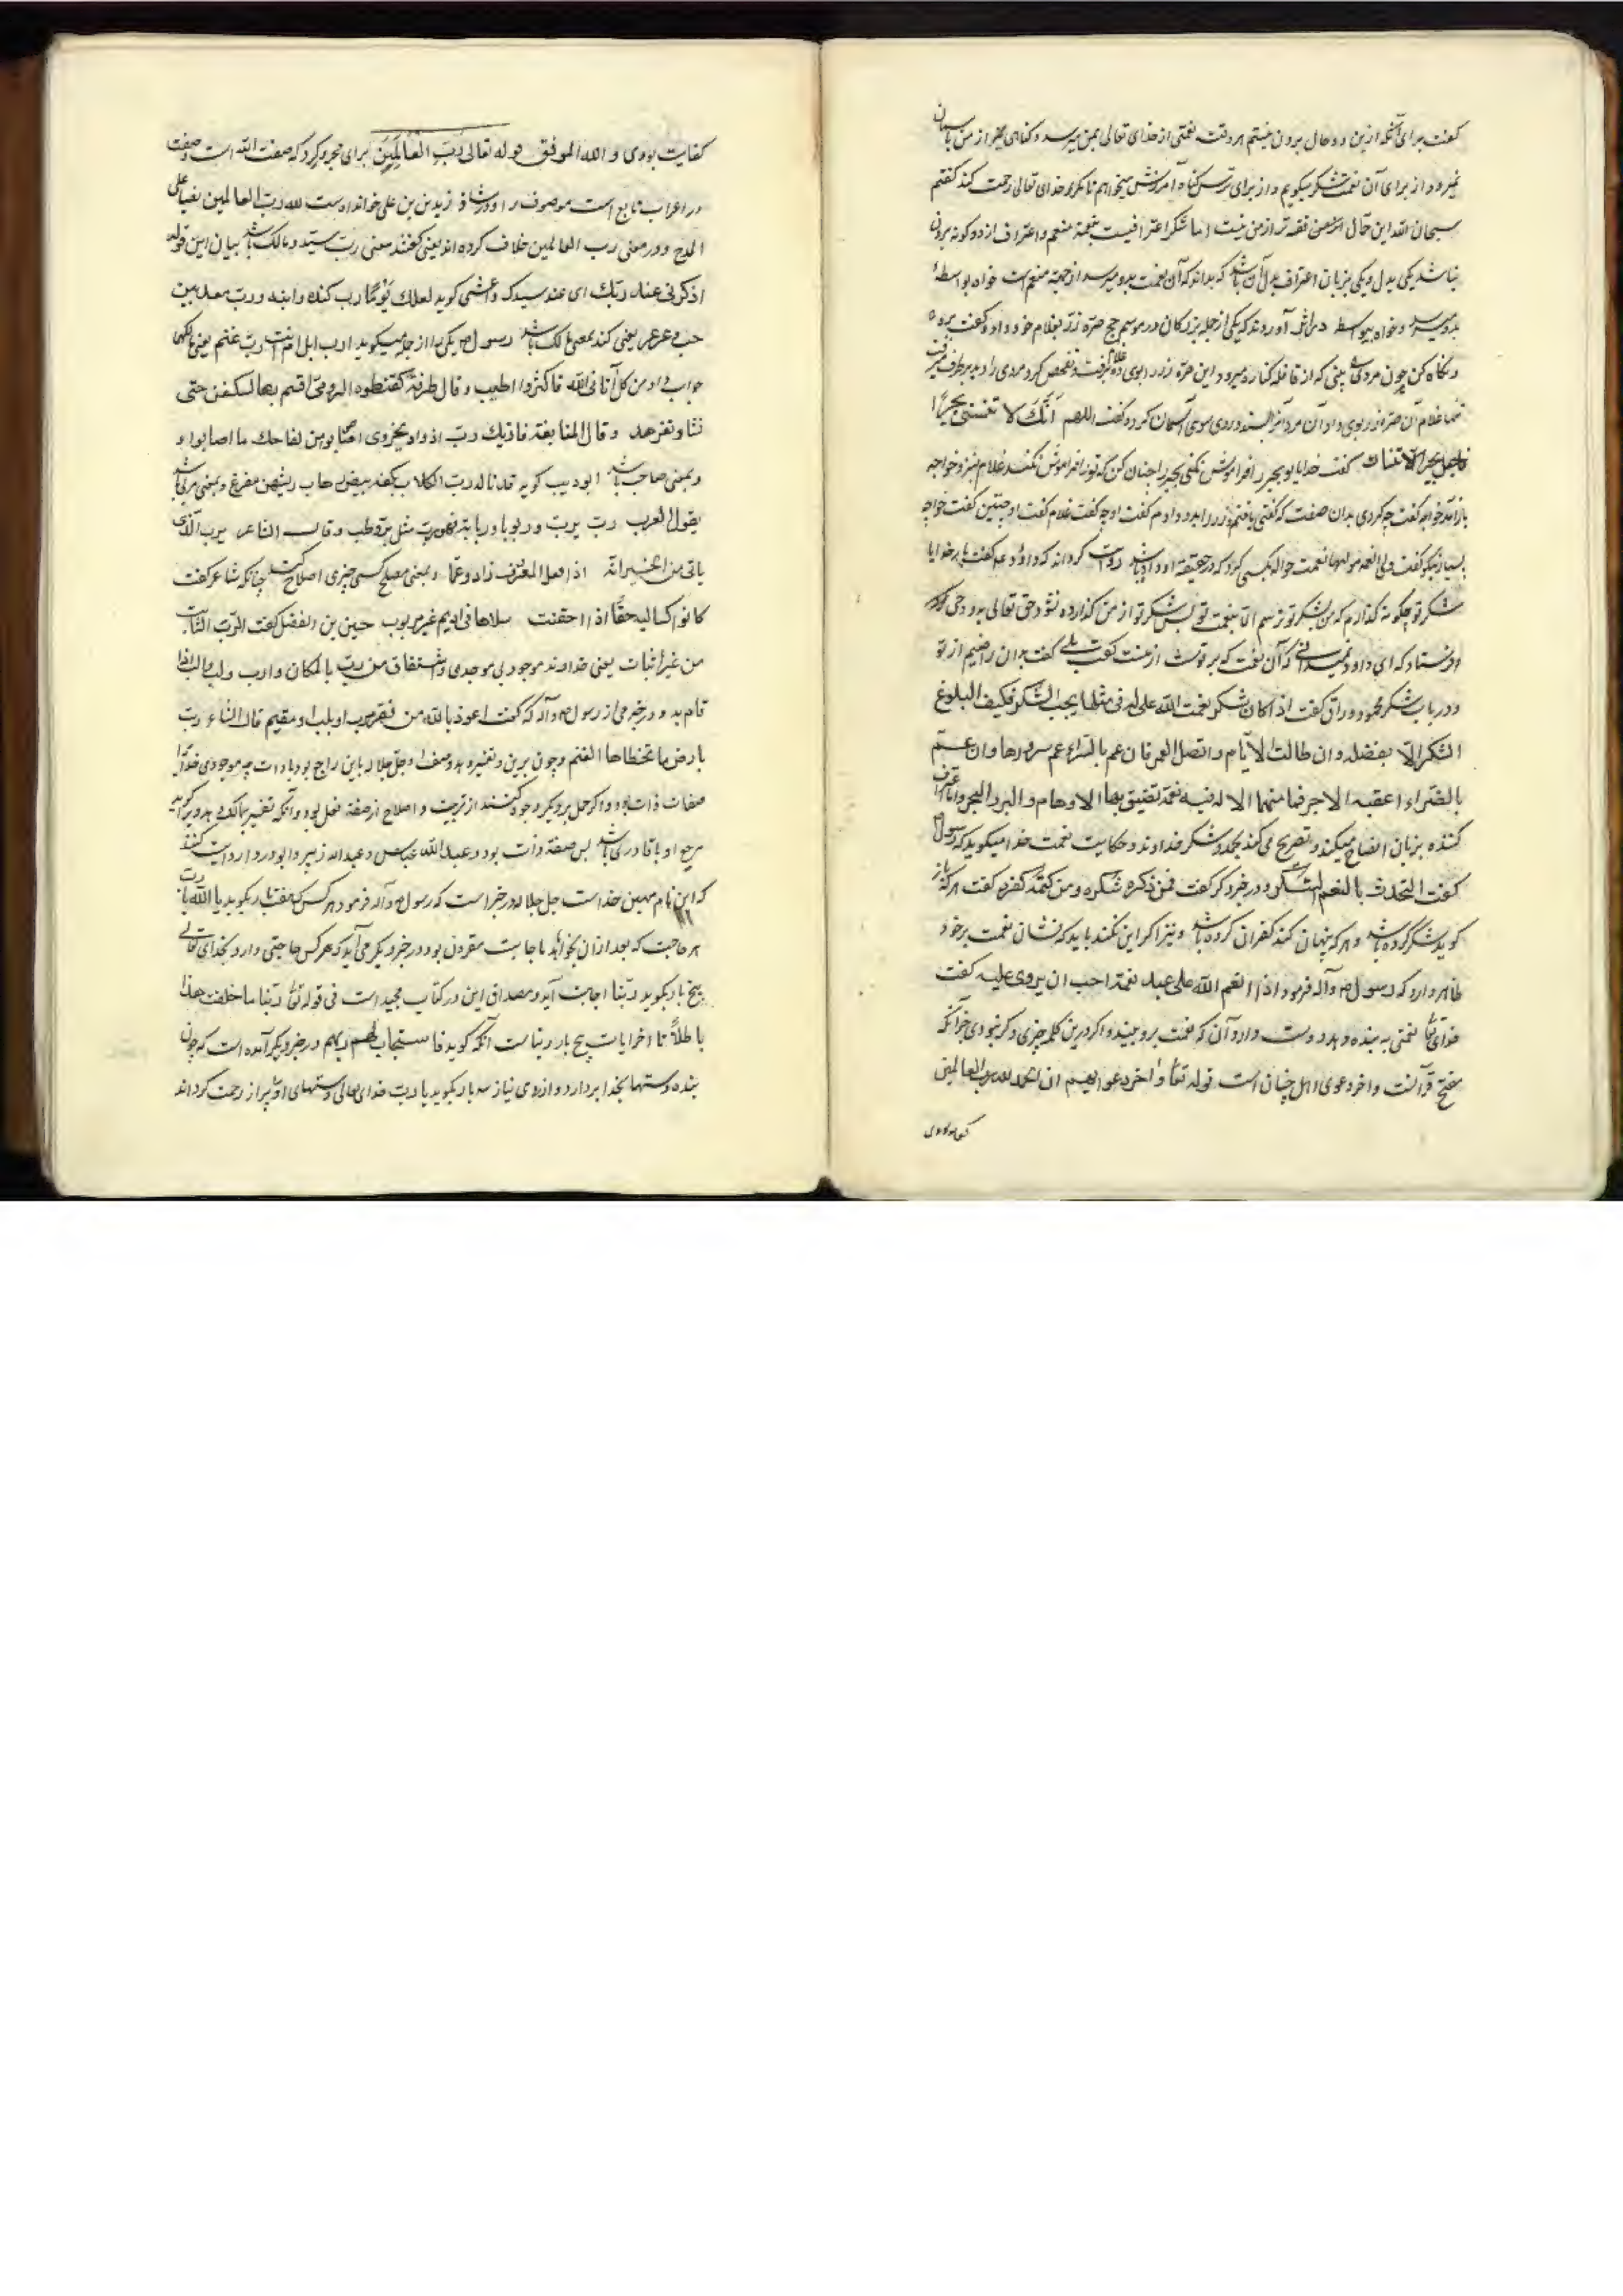 گفت برای آنکه ازین دو حال برون نیستم هر وقت نعمتی از خدای تعالی بمن میرسد و گناهی نیز از من باسمان
میرود از برای آن نعمت شکر میگویم و از برای ترس گناه آمرزش میخواهم تا مگر خدای تعالی رحمت کند گفتم
سبحان الله این حال از من فقیه تر از من نیست اما شکر اعترافیست بنعمة منعم و اعتراف از دو گونه برون
نباشد یکی بدل و یکی بزبان اعتراف بدل آن باشد که بداند که آن نعمت بدو میرسد از جهة منعم است خواه بواسطهٔ
بدو میرسد و خواه بیواسطه آوردند که یکی از جمله بزرگان در موسم حج صرّه زر بغلام خود داد و گفت برو
و نگاه کن چون مردی بینی که از قافله کناره میرود این صرّه زر را بوی ده غلام برفت و تفحص کرد مردی را دید بر طرفی میرفت
تنها غلام آن صرّه زر بوی داد آن مرد آنرا بستد و روی سوی آسمان کرد و گفت اللهم انّک لا تنسی بحیرًا
فاجعل بحیرًا لا ینساک گفت خدایا تو بحیر را فراموش نکنی بحیر را چنان کن که تو را فراموش نکند غلام نزد خواجه
باز آمد خواجه گفت چه کردی بدان صفت که گفتی یافتم و زر را بدو دادم گفت او چه گفت غلام گفت او چنین گفت خواجه
بسیار نیکو گفت ولی النعمه مولیها نعمت حواله بکسی کرد که در حقیقة او داده باشد روایت کرده‌اند که داود گفت بار خدایا
شکر تو چگونه گذارم که من بشکر تو نرسم الا بنعمت تو پس شکر تو از من گذارده نشود حق تعالی بدو وحی
فرستاد که ای داود نمیدانی که آن نعمت که بر توست از منست گفت بلی گفت بدان راضیم از تو
و در باب شکر محمود وراق گفت اذا کان شکر نعمت الله علی له فی مثلها یجب الشکر فکیف البلوغ
الشکر الّا بفضله و ان طالت الایّام و اتصل العمر فان عم بالسّراء عم سرورها و ان عم
بالضّراء اعقبه الاجر فما منهما الا له فیه نعمة تضیق بها الاوهام و البر و البحر و اما
کننده بزبان افصاح میکند و تصریح می کند بحمد و شکر خداوند و حکایت نعمت خدا میگوید که رسول
گفت التحدث بالنعم شکر و در خبر دگر گفت فمن ذکره شکره و من کتمه کفره گفت هر که باز
گوید شکر کرده باشد و هر که پنهان کند کفران کرده باشد و نیز اگر این نکند باید که نشان نعمت بر خود
ظاهر دارد که رسول و آله فرمود اذا انعم الله علی عبد نعمة احب ان یری علیه گفت
خدای تعالی نعمتی به بنده دهد دوست دارد آن که نعمت برو بینند و اگر درین کلمه چیزی دگر نبودی جز آنکه
مفتح قرآنست و آخر دعوی اهل جنان است قوله تعالی و اخر دعواهم ان الحمد لله رب العالمین
کفایت بودی
کفایت بودی و الله الموفق قوله تعالی رَبِّ الْعَالَمِینَ برای مجرور کرد که صفت الله است و صفت
در اعراب تابع است موصوف را و در شاذ زید بن علی خوانده است لله ربّ العالمین نصبا علی
المدح و در معنی رب العالمین خلاف کرده اند بعضی گفتند معنی ربّ سیّد و مالک باشد بیان این قوله
اذکرنی عند ربّک ای عند سیدک و اعشی گوید رب کنده و ابنه و ربّ معد بین
خبت و عرعر یعنی کنده بمعنی مالک باشد رسول یکی را از جمله میگوید ارب ابل ام انت ربّ غنم یعنی مالکها
جواب داد من کل آتانی الله فاکثر و اطیب و قال طرفة کقنطرة الرومی اقسم ربها لتکتنفن حتی
و قال النابغة
و بمعنی صاحب باشد ابو ذویب گوید قد ناله ربّ الکلاب بکفه بیض رهاب ریشهن مقزع و بمعنی مربی باشد
یقول العرب ربّ یربّ و ربوبا و ربابة فهو ربّ مثل برّ و طب و قال الشاعر یربّ الّذی
یأتی من الخیر انّه اذا فعل المعروف زاد و تمّما و بمعنی مصلح کسی چیزی اصلاح کند چنانکه شاعر گفت
کانوا کسالیة حمقا اذا حقنت سلاها فی ادیم غیر مربوب حسین بن الفضل گفت الربّ الثابت
من غیر اثبات یعنی خداوند موجود بی موجدی و اشتقاق من ربّ بالمکان و ارب و لبّ و البّ اذا
قام به و در خبر می آید از رسول و آله که گفت اعوذ بالله من فقر مرب او ملب او مقیم قال الشاعر ربّ
بارض ما تخطاها الغنم و چون برین تفسیر دهد وصف او جل جلاله باین راجع بود با ذات چه موجودی خدا از
صفات ذات بود و اگر حمل بر دیگر وجوه کنند از تربیت و اصلاح از صفة فعل بود و آنکه تفسیر بمالک دهد و بر گوید
مرجع او با قادری باشد پس صفة ذات بود و عبدالله عباس و عبدالله زبیر و ابو دردا روایت کنند
که این نام مهین خداست جل جلاله در خبر است که رسول و آله فرمود هر کس که هفت بار بگوید یا الله یا ربّ
هر حاجت که بعد از آن بخواهد باجابت مقرون بود و در خبر دیگر می آید که هر کس حاجتی دارد بخدای تعالی
پنج بار بگوید ربّنا اجابت آید و مصداق این در کتاب مجید است فی قوله تعالی ربّنا ما خلقت هذا
باطلاً تا آخر آیات پنج بار ربنا است آنگه گوید فاستجاب لهم ربهم و در خبر دیگر آمده است که چون
بنده دستها بخدا بردارد و از روی نیاز سه بار بگوید یا ربّ خدای تعالی دستهای او پر از رحمت گرداند